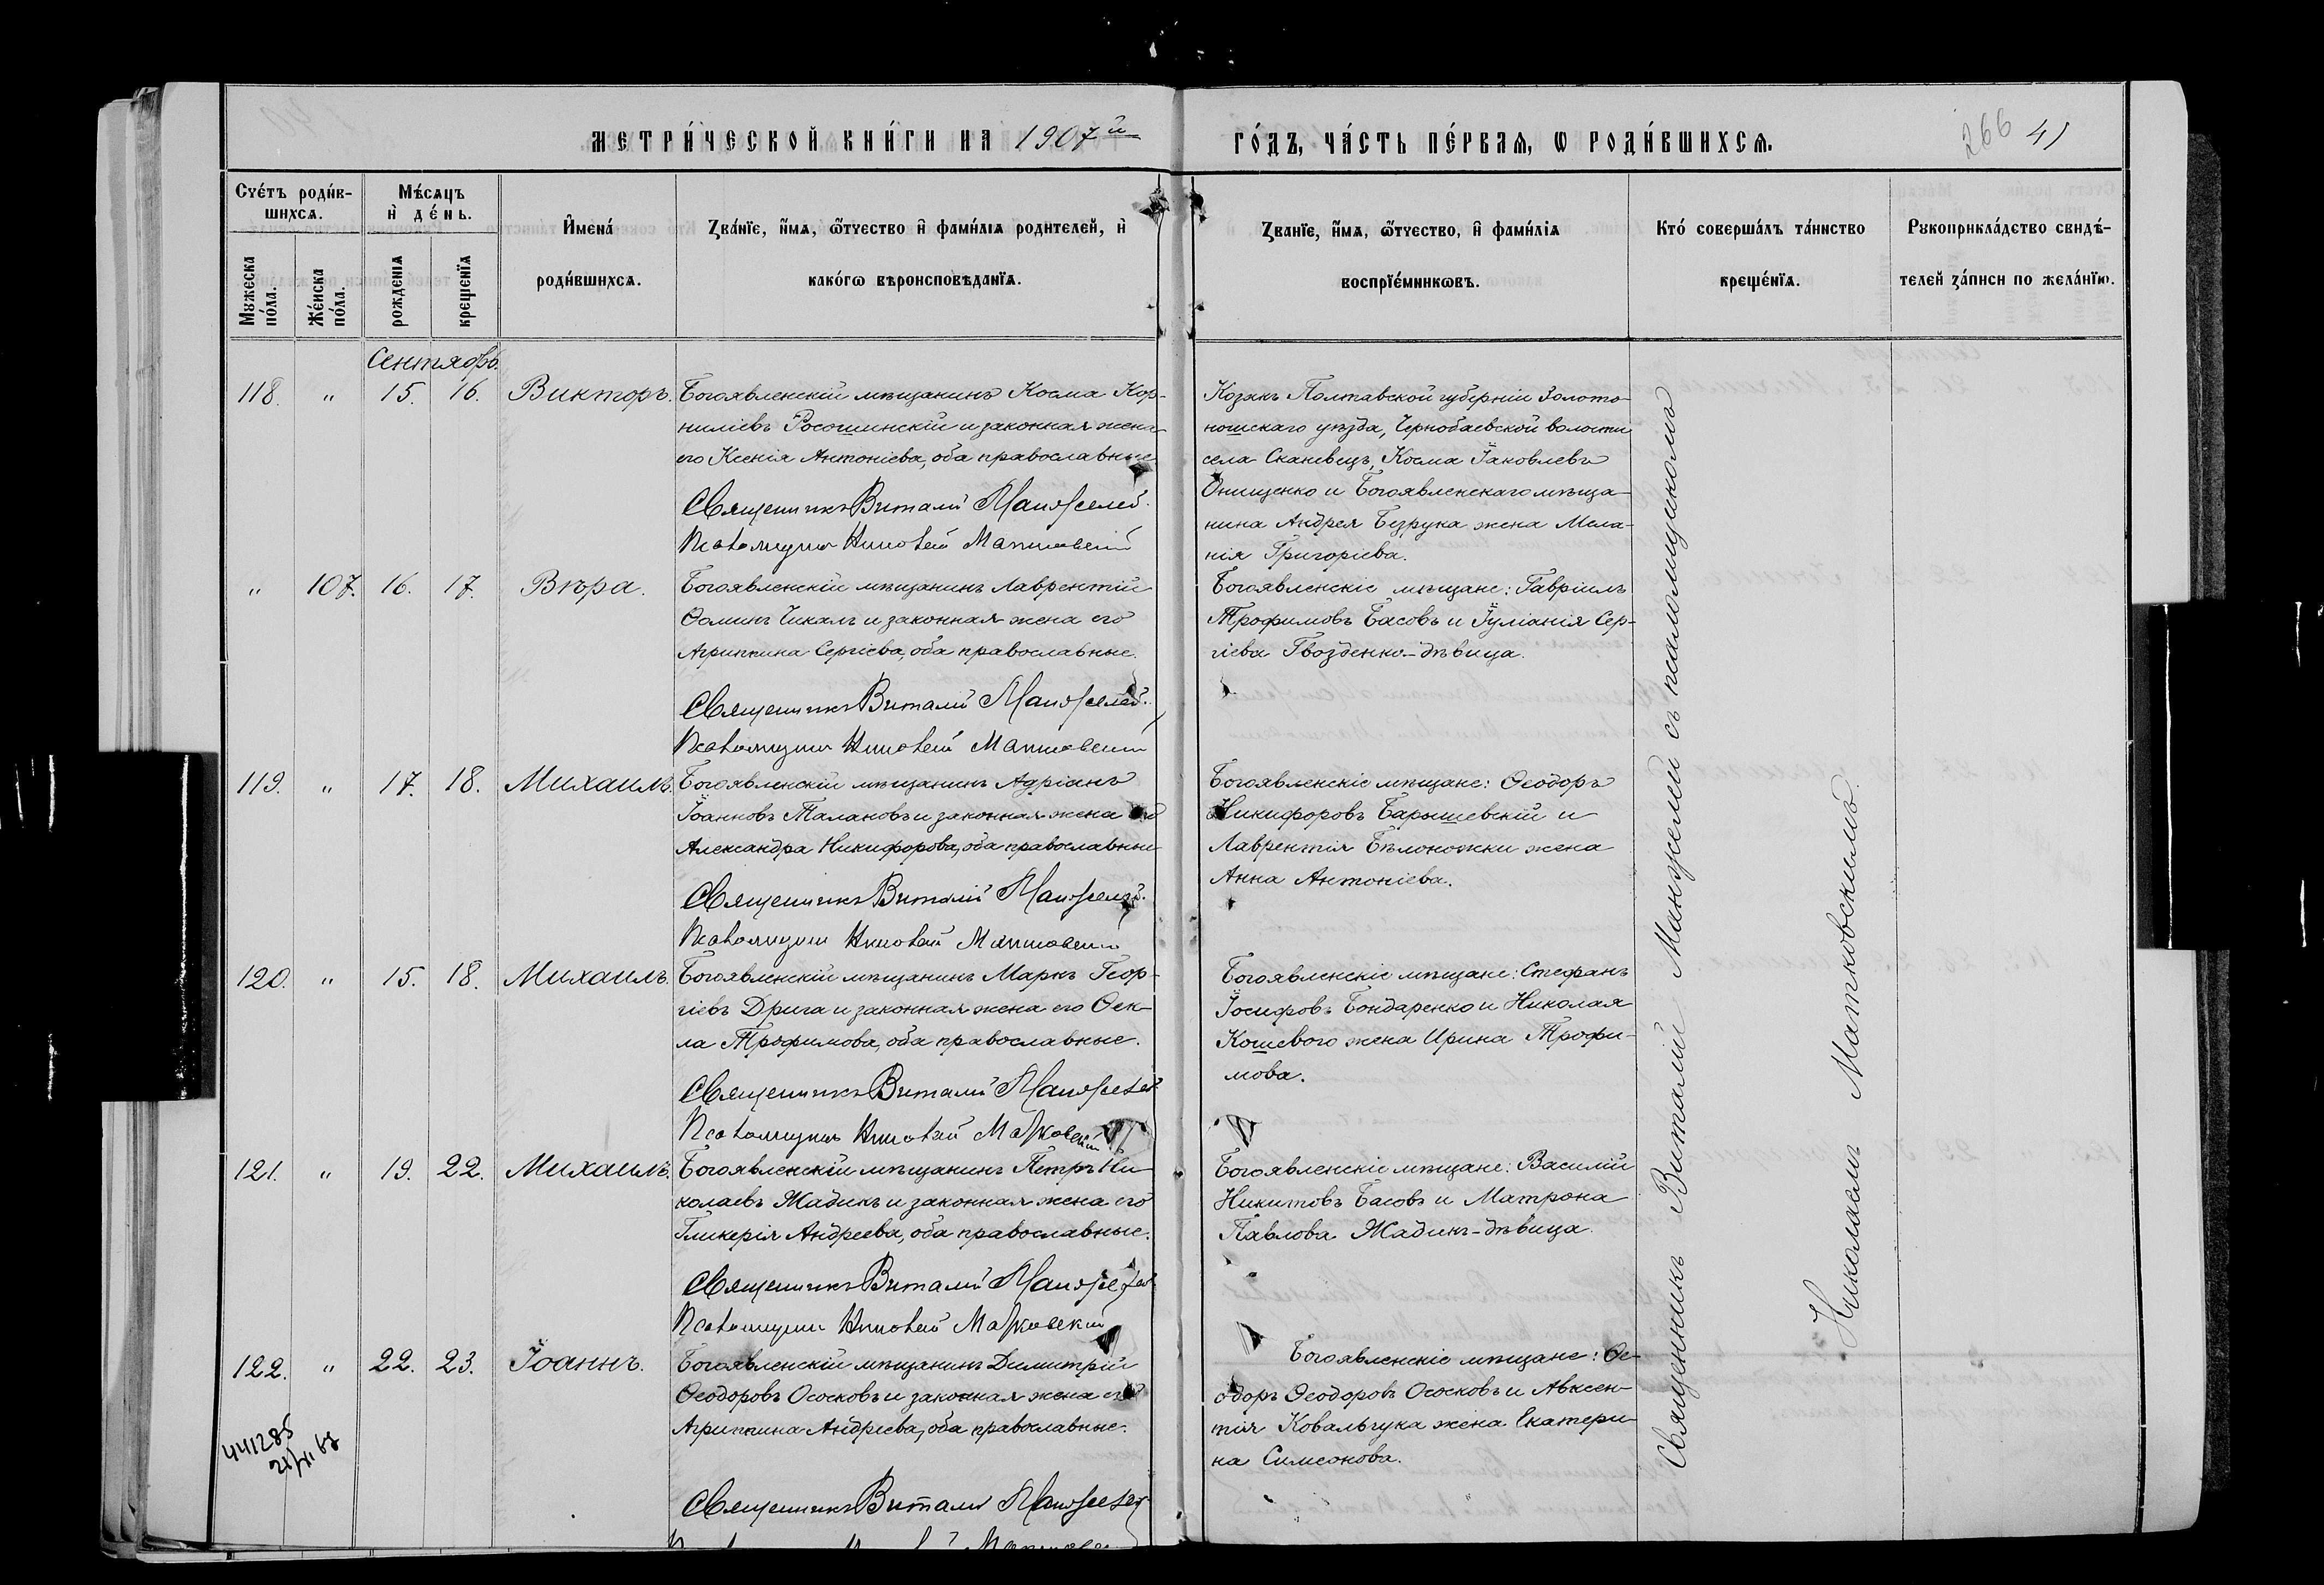 МЕТРИ́ЧЕСКОЙ КНИ́ГИ НА 1907й
ГО́ДЪ, ЧА́СТЬ ПЕ́РВАЯ, Ѡ РОДИ́ВШИХСѦ.
266 41
Счéтъ роди́в-
шихсѧ.
Мѣ́сѧцъ
и҆ де́нь.
И҆мена́
роди́вшихсѧ.
Ꙁва́нїе, и҆́мѧ, ѻ҆́тчество и҆ фами́лїѧ родителей, и҆
како́гѡ вѣроисповѣданїѧ.
Ꙁванїе, и҆́мѧ, ѻ҆́тчество, и҆ фами́лїѧ
воспрїе́мникѡвъ.
Кто́ соверша́лъ та́инство
креще́нїѧ.
Рꙋкоприкла́дство свидѣ́-
телей ꙁа́писи по жела́нїю.
Мꙋжеска
по́ла.
Же́нска
по́ла.
рожденїѧ
крещенїѧ
Сентябрь.
118. " 15. 16. Викторъ.
Богоявленскій мѣщанинъ Косма Кор-
ниліевъ Росошинскій и законная жена
его Ксенія Антоніева, оба православные
Священникъ Виталій Манжелей.
Псаломщикъ Николай Матковскій
Козакъ Полтавской губерніи Золото-
ношскаго уѣзда, Чернобаевской волости
села Сканевецъ, Косма Іаковлевъ
Онищенко и Богоявленскаго мѣща-
нина Андрея Безрука жена Мела-
нія Григоріева.
" 107. 16. 17. Вѣра.
Богоявленскій мѣщанинъ Лаврентій
Ѳоминъ Чикалъ и законная жена его
Агриппина Сергіева, оба православные.
Священникъ Виталій Манжелей.
Псаломщикъ Николай Матковскій
Богоявленскіе мѣщане: Гавріилъ
Трофимовъ Басовъ и Іуліанія Сер-
гіева Гвозденко-дѣвица.
119. " 17. 18. Михаилъ.
Богоявленскій мѣщанинъ Адріанъ
Іоанновъ Талановъ и законная жена его
Александра Никифорова, оба православные
Священникъ Виталій Манжелей.
Псаломщикъ Николай Матковскій
Богоявленскіе мѣщане: Ѳеодоръ
Никифоровъ Барышевскій и
Лаврентія Бѣлоножки жена
Анна Антоніева.
120. " 15. 18. Михаилъ.
Богоявленскій мѣщанинъ Маркъ Геор-
гіевъ Дрига и законная жена его Ѳек-
ла Трофимова, оба православные.
Священникъ Виталій Манжелей
Псаломщикъ Николай Матковскій
Богоявленскіе мѣщане: Стефанъ
Іосифовъ Бондаренко и Николая
Кошевого жена Ирина Трофи-
мова.
121. " 19. 22. Михаилъ.
Богоявленскій мѣщанинъ Петръ Ни-
колаевъ Жадикъ и законная жена его
Гликерія Андреева, оба православные.
Священникъ Виталій Манжелей
Псаломщикъ Николай Матковскій
Богоявленскіе мѣщане: Василій
Никитовъ Басовъ и Матрона
Павлова Жадикъ-дѣвица.
122. " 22. 23. Іоаннъ.
Богоявленскій мѣщанинъ Димитрій
Ѳеодоровъ Ососковъ и законная жена его
Агриппина Андреева, оба православные.
Священникъ Виталій Манжелей
Богоявленскіе мѣщане: Ѳе-
одоръ Ѳеодоровъ Ососковъ и Авксен-
тія Ковальчука жена Екатери-
на Симеонова.
441285
Священникъ Виталій Манжелей съ псаломщикомъ
Николаемъ Матковскимъ.